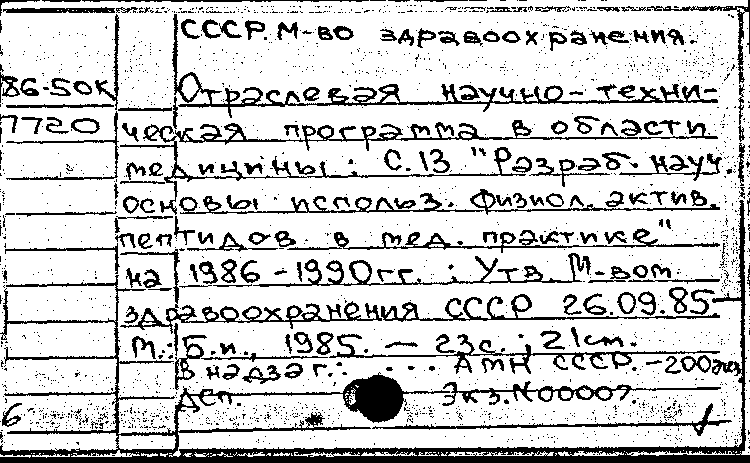 СССР. М-во здравоохранения.
86-50К
Отраслевая научно-техни-
7720
ческая программа в области
медицины: С.13 "Разраб. науч.
основы использ. физиол. актив.
пептидов в мед. практике"
на 1986-1990гг. : Утв. М-вом
здравоохранения СССР 26.09.85.—
М.: Б.и., 1985. — 23с. ; 21см.
В надзаг.: ... АМН СССР. — 200экз.
ДСП. Экз.N00007.
6